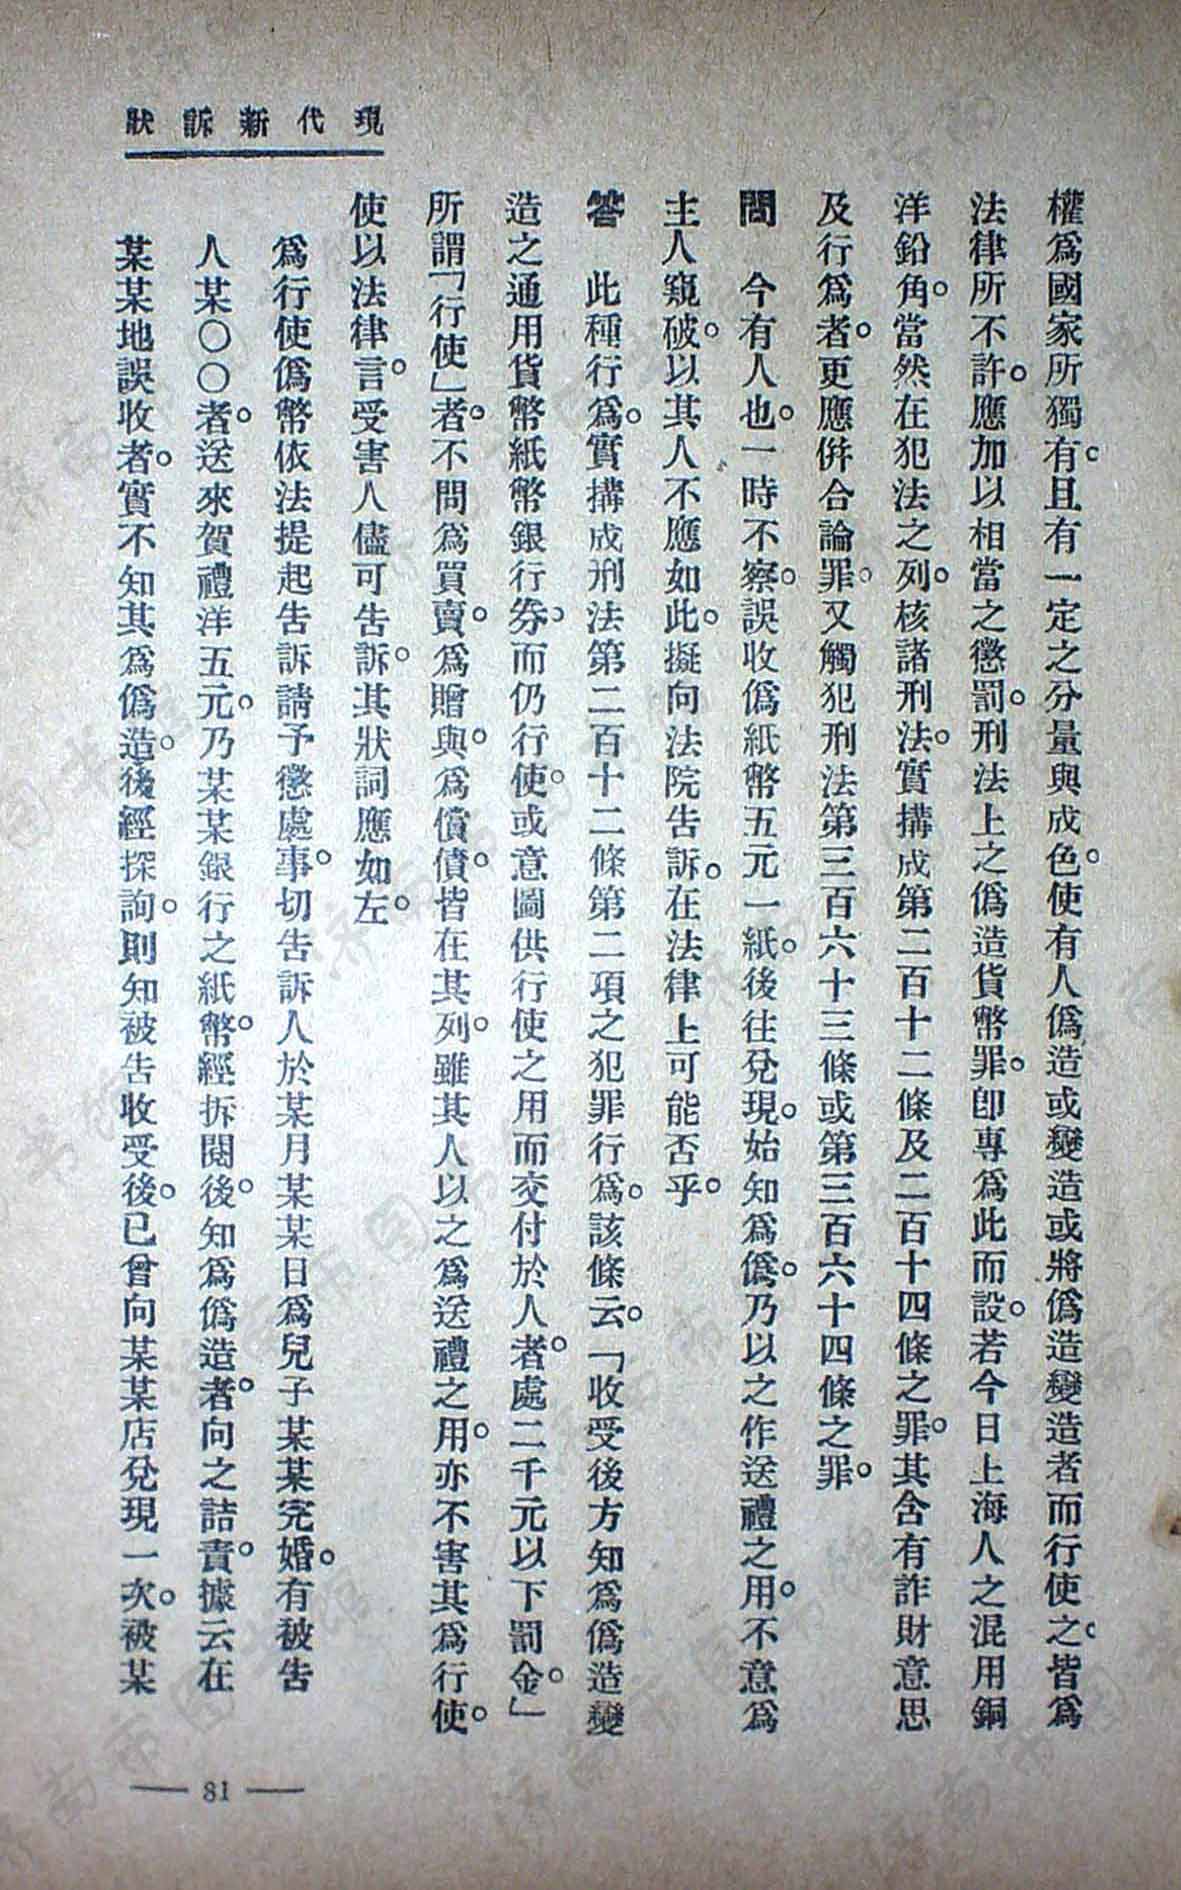 現代新訴狀
權爲國家所獨有。且有一定之分量與成色。使有人僞造或變造或將僞造變造者而行使之。皆爲
法律所不許。應加以相當之懲罰。刑法上之僞造貨幣罪。卽專爲此而設。若今日上海人之混用銅
洋鉛角。當然在犯法之列。核諸刑法。實搆成第二百十二條及二百十四條之罪。其含有詐財意思
及行爲者。更應併合論罪。又觸犯刑法第三百六十三條或第三百六十四條之罪。
問　今有人也。一時不察。誤收僞紙幣五元一紙。後往兌現。始知爲僞。乃以之作送禮之用。不意爲
主人窺破。以其人不應如此。擬向法院告訴。在法律上可能否乎。
答　此種行爲。實搆成刑法第二百十二條第二項之犯罪行爲。該條云。「收受後方知爲僞造變
造之通用貨幣紙幣銀行券。而仍行使。或意圖供行使之用而交付於人者。處二千元以下罰金。」
所謂「行使」者。不問爲買賣。爲贈與。爲償債。皆在其列。雖其人以之爲送禮之用。亦不害其爲行使。
使以法律言。受害人儘可告訴。其狀詞應如左。
爲行使僞幣依法提起告訴請予懲處事。切告訴人於某月某某日爲兒子某某完婚。有被告
人某〇〇者。送來賀禮洋五元。乃某某銀行之紙幣。經拆閱後。知爲僞造者。向之詰責。據云在
某某地誤收者。實不知其爲僞造。後經探詢。則知被告收受後。已曾向某某店兌現一次。被某
— 81 —
南市图书馆
济南市图书馆